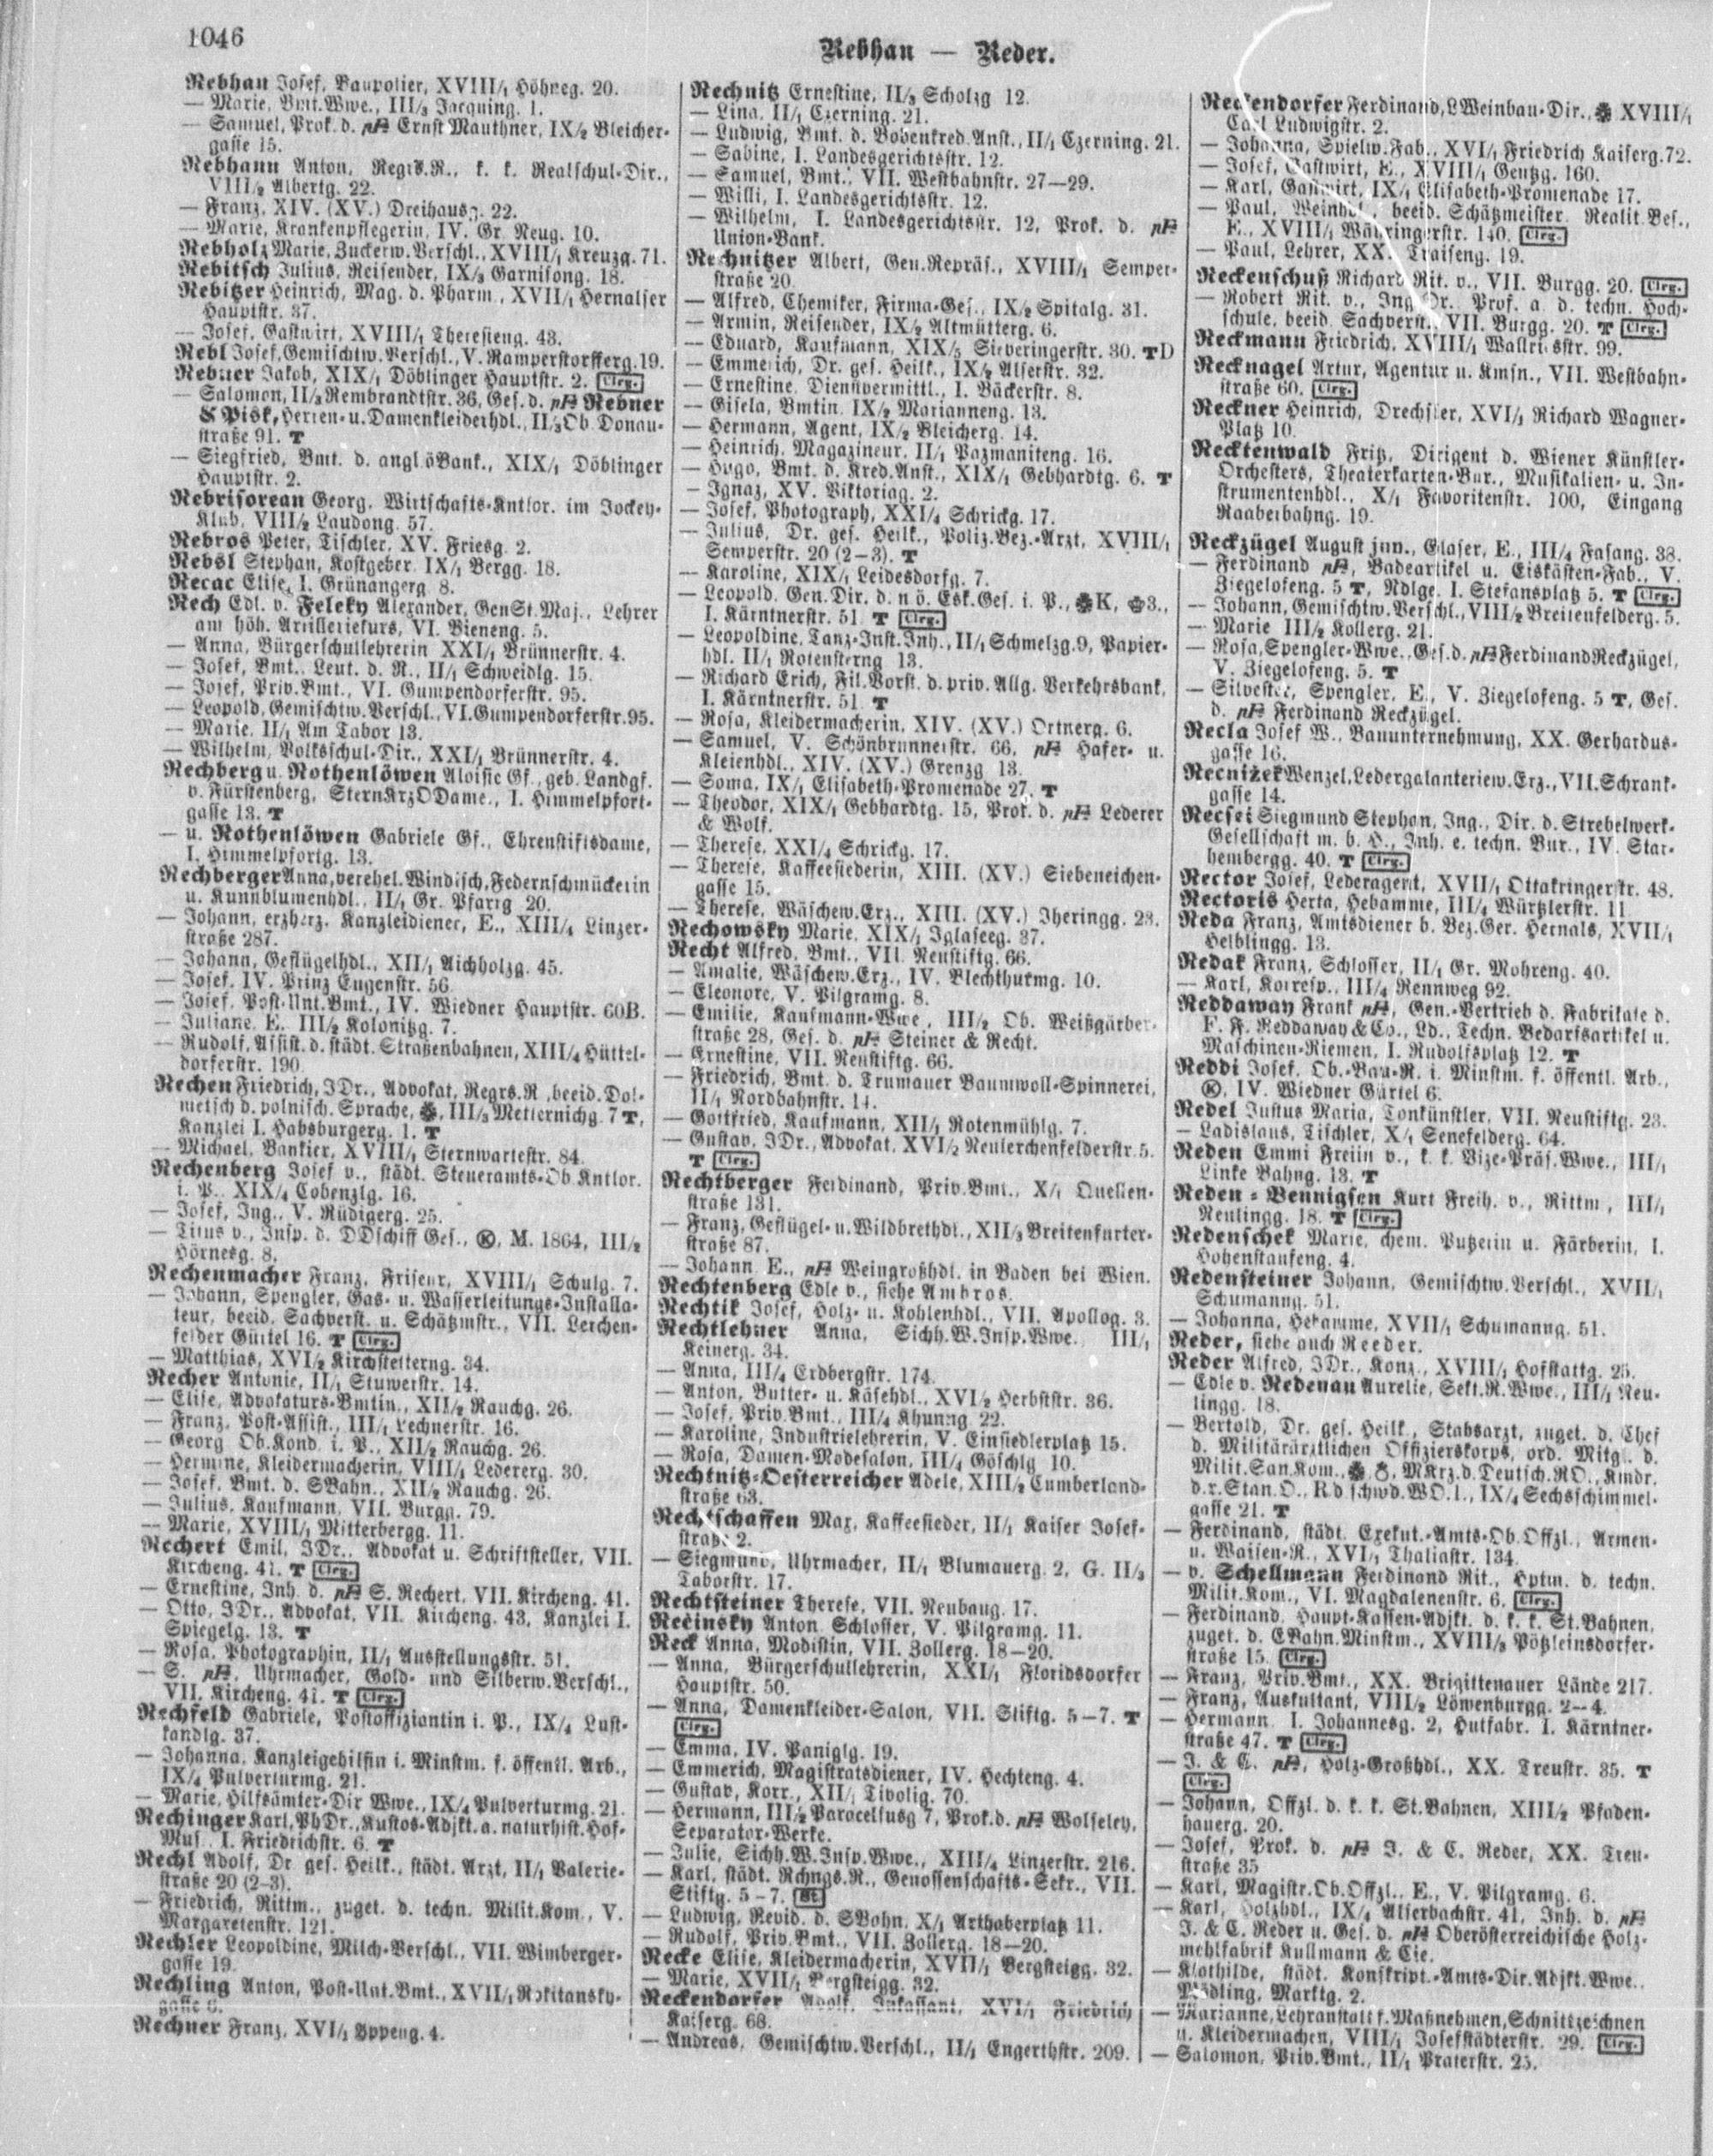 1046
Rebhan — Reder.
Rebhan Josef, Baupolier, XVIII/1 Höhneg. 20.
— Marie, Bmt.Wwe., III/3 Jacquing. 1.
— Samuel, Prok. d. pH Ernst Mauthner, IX/2 Bleicher-
gasse 15.
Rebhann Anton, Regrs.R., k. k. Realschul-Dir.,
VIII/2 Albertg. 22.
— Franz, XIV. (XV.) Dreihausg. 22.
— Marie, Krankenpflegerin, IV. Gr. Neug. 10.
Rebholz Marie, Zuckerw.Verschl., XVIII/1 Kreuzg. 71.
Rebitsch Julius, Reisender, IX/3 Garnisong. 18.
Rebitzer Heinrich, Mag. d. Pharm., XVII/1 Hernalser
Hauptstr. 37.
— Josef, Gastwirt, XVIII/1 Theresieng. 43.
Rebl Josef, Gemischtw.Verschl., V. Ramperstorfferg. 19.
Rebner Jakob, XIX/1 Döblinger Hauptstr. 2. Clrg.
— Salomon, II/3 Rembrandtstr. 36, Ges. d. pH Rebner
& Pisk, Herren- u. Damenkleiderhdl., II/3 Ob. Donau-
straße 91. T
— Siegfried, Bmt. d. angl.öBank., XIX/1 Döblinger
Hauptstr. 2.
Rebrisorean Georg, Wirtschafts-Kntlor. im Jockey-
Klub, VIII/2 Laudong. 57.
Rebros Peter, Tischler, XV. Friesg. 2.
Rebsl Stephan, Kostgeber, IX/1 Bergg. 18.
Recac Elise, I. Grünangerg. 8.
Rech Edl. v. Feleky Alexander, GenSt.Maj., Lehrer
am höh. Artilleriekurs, VI. Bieneng. 5.
— Anna, Bürgerschullehrerin XXI/1 Brünnerstr. 4.
— Josef, Bmt., Leut. d. R., II/1 Schweidlg. 15.
— Josef, Priv.Bmt., VI. Gumpendorferstr. 95.
— Leopold, Gemischtw.Verschl., VI. Gumpendorferstr. 95.
— Marie, II/1 Am Tabor 13.
— Wilhelm, Volksschul-Dir., XXI/1 Brünnerstr. 4.
Rechberg u. Rothenlöwen Aloisie Gf., geb. Landgf.
v. Fürstenberg, SternKrzODame., I. Himmelpfort-
gasse 13. T
— u. Rothenlöwen Gabriele Gf., Ehrenstiftsdame,
I. Himmelpfortg. 13.
Rechberger Anna, verehel. Windisch, Federnschmückerin
u. Kunstblumenhdl., II/1 Gr. Pfarrg. 20.
— Johann, erzherz. Kanzleidiener, E., XIII/4 Linzer-
straße 287.
— Johann, Geflügelhdl., XII/1 Aichholzg. 45.
— Josef, IV. Prinz Eugenstr. 56
— Josef, Post-Unt.Bmt., IV. Wiedner Hauptstr. 60B.
— Juliane, E. III/2 Kolonitzg. 7.
— Rudolf, Assist. d. städt. Straßenbahnen, XIII/4 Hüttel-
dorferstr. 190.
Rechen Friedrich, JDr., Advokat, Regrs.R., beeid. Dol-
metsch d. polnisch. Sprache, III/3 Metternichg. 7 T,
Kanzlei I. Habsburgerg. 1. T
— Michael, Bankier, XVIII/1 Sternwartestr. 84.
Rechenberg Josef v., städt. Steueramts-Ob.Kntlor.
i. P., XIX/4 Cobenzlg. 16.
— Josef, Ing., V. Rüdigerg. 25.
— Titus v., Insp. d. DDschiff Ges., Ⓚ, M. 1864, III/2
Hörnesg. 8.
Rechenmacher Franz, Friseur, XVIII/1 Schulg. 7.
— Johann, Spengler, Gas- u. Wasserleitungs-Installa-
teur, beeid. Sachverst. u. Schätzmstr., VII. Lerchen-
felder Gürtel 16. T Clrg.
— Matthias, XVI/2 Kirchstetterng. 34.
Recher Antonie, II/1 Stuwerstr. 14.
— Elise, Advokaturs-Bmtin., XII/2 Rauchg. 26.
— Franz, Post-Assist., III/1 Lechnerstr. 16.
— Georg Ob.Kond. i. P., XII/2 Rauchg. 26.
— Hermine, Kleidermacherin, VIII/1 Ledererg. 30.
— Josef, Bmt. d. SBahn., XII/2 Rauchg. 26.
— Julius, Kaufmann, VII. Burgg. 79.
— Marie, XVIII/1 Mitterbergg. 11.
Rechert Emil, JDr., Advokat u. Schriftsteller, VII.
Kircheng. 41. T Clrg.
— Ernestine, Inh. d. pH S. Rechert, VII. Kircheng. 41.
— Otto, JDr., Advokat, VII. Kircheng. 43, Kanzlei I.
Spiegelg. 13. T
— Rosa, Photographin, II/1 Ausstellungsstr. 51.
— S. pH, Uhrmacher, Gold- und Silberw.Verschl.,
VII. Kircheng. 41. T Clrg.
Rechfeld Gabriele, Postoffiziantin i. P., IX/4 Lust-
kandlg. 37.
— Johanna, Kanzleigehilfin i. Minstm. f. öffentl. Arb.,
IX/4 Pulverturmg. 21.
— Marie, Hilfsämter-Dir Wwe., IX/4 Pulverturmg. 21.
Rechinger Karl, PhDr., Kustos-Adjkt. a. naturhist. Hof-
Mus., I. Friedrichstr. 6. T
Rechl Adolf, Dr. ges. Heilk., städt. Arzt, II/1 Valerie-
straße 20 (2-3).
— Friedrich, Rittm., zuget. d. techn. Milit.Kom., V.
Margaretenstr. 121.
Rechler Leopoldine, Milch-Verschl., VII. Wimberger-
gasse 19.
Rechling Anton, Post-Unt.Bmt., XVII/1 Rokitansky-
gasse
Rechner Franz, XVI/1 Yppeng. 4.
Rechnitz Ernestine, II/3 Scholzg 12.
— Lina, II/1 Czerning. 21.
— Ludwig, Bmt. d. Bodenkred.Anst., II/1 Czerning. 21.
— Sabine, I. Landesgerichtsstr. 12.
— Samuel, Bmt., VII. Westbahnstr. 27—29.
— Willi, I. Landesgerichtsstr. 12.
— Wilhelm, I. Landesgerichtsstr. 12, Prok. d. pH
Union-Bank.
Rechnitzer Albert, Gen.Repräs., XVIII/1 Semper-
straße 20.
— Alfred, Chemiker, Firma-Ges., IX/2 Spitalg. 31.
— Armin, Reisender, IX/2 Altmütterg. 6.
— Eduard, Kaufmann, XIX/5 Sieveringerstr. 30. TD
— Emmerich, Dr. ges. Heilk., IX/2 Alserstr. 32.
— Ernestine, Dienstvermittl., I. Bäckerstr. 8.
— Gisela, Bmtin, IX/2 Marianneng. 13.
— Hermann, Agent, IX/2 Bleicherg. 14.
— Heinrich, Magazineur, II/1 Pazmaniteng. 16.
— Hugo, Bmt. d. Kred.Anst., XIX/1 Gebhardtg. 6. T
— Ignaz, XV. Viktoriag. 2.
— Josef, Photograph, XXI/4 Schrickg. 17.
— Julius, Dr. ges. Heilk., Poliz.Bez.-Arzt, XVIII/1
Semperstr. 20 (2—3). T
— Karoline, XIX/1 Leidesdorfg. 7.
— Leopold, Gen.Dir. d. n ö. Esk.Ges. i. P., K, 3.,
I. Kärntnerstr. 51. T Clrg.
— Leopoldine, Tanz-Inst.Inh., II/1 Schmelzg. 9, Papier-
hdl. II/1 Rotensterng 13.
— Richard Erich, Fil.Vorst. d. priv. Allg. Verkehrsbank,
I. Kärntnerstr. 51. T
— Rosa, Kleidermacherin, XIV. (XV.) Ortnerg. 6.
— Samuel, V. Schönbrunnerstr. 66, pH Hafer- u.
Kleienhdl., XIV. (XV.) Grenzg 13.
— Soma, IX/1 Elisabeth-Promenade 27. T
— Theodor, XIX/1 Gebhardtg. 15, Prok. d. pH Lederer
& Wolf.
— Therese, XXI/4 Schrickg. 17.
— Therese, Kaffeesiederin, XIII. (XV.) Siebeneichen-
gasse 15.
— Therese, Wäschew.Erz., XIII. (XV.) Iheringg. 23.
Rechowsky Marie, XIX/1 Iglaseeg. 37.
Recht Alfred, Bmt., VII. Neustiftg. 66.
— Amalie, Wäschew.Erz., IV. Blechthurmg. 10.
— Eleonore, V. Pilgramg. 8.
— Emilie, Kaufmann-Wwe., III/2 Ob. Weißgärber-
straße 28, Ges. d. pH Steiner & Recht.
— Ernestine, VII. Neustiftg. 66.
— Friedrich, Bmt. d. Trumauer Baumwoll-Spinnerei,
II/1 Nordbahnstr. 14.
— Gottfried, Kaufmann, XII/1 Rotenmühlg. 7.
— Gustav, JDr., Advokat, XVI/2 Neulerchenfelderstr. 5.
T Clrg.
Rechtberger Ferdinand, Priv.Bmt., X/1 Quellen-
straße 131.
— Franz, Geflügel- u. Wildbrethdl., XII/3 Breitenfurter-
straße 87.
— Johann, E., pH Weingroßhdl. in Baden bei Wien.
Rechtenberg Edle v., siehe Ambros.
Rechtik Josef, Holz- u. Kohlenhdl., VII. Apollog. 3.
Rechtlehner Anna, Sichh.W.Insp.Wwe. III/1
Keinerg. 34.
— Anna, III/4 Erdbergstr. 174.
— Anton, Butter- u. Käsehdl., XVI/2 Herbststr. 36.
— Josef, Priv.Bmt., III/4 Khunng 22.
— Karoline, Industrielehrerin, V. Einsiedlerplatz 15.
— Rosa, Damen-Modesalon, III/4 Göschlg 10.
Rechtnitz-Oesterreicher Adele, XIII/2 Cumberland-
straße 63.
Rechtschaffen Max, Kaffeesieder, II/1 Kaiser Josef-
straße 2.
— Siegmund, Uhrmacher, II/1 Blumauerg. 2, G. II/3
Taborstr. 17.
Rechtsteiner Therese, VII. Neubaug. 17.
Rečinsky Anton Schlosser, V. Pilgramg. 11.
Reck Anna, Modistin, VII. Zollerg. 18—20.
— Anna, Bürgerschullehrerin, XXI/1 Floridsdorfer
Hauptstr. 50.
— Anna, Damenkleider-Salon, VII. Stiftg. 5—7. T
Clrg.
— Emma, IV. Paniglg. 19.
— Emmerich, Magistratsdiener, IV. Hechteng. 4.
— Gustav, Korr., XII/1 Tivolig. 70.
— Hermann, III/2 Paracelsusg 7, Prok. d. pH Wolseley,
Separator-Werke.
— Julie, Sichh.W.Insp.Wwe., XIII/4 Linzerstr. 216.
— Karl, städt. Rchngs.R., Genossenschafts-Sekr., VII.
Stiftg. 5—7.
— Ludwig, Revid. d. SBahn, X/1 Arthaberplatz 11.
— Rudolf, Priv.Bmt., VII. Zollerg. 18—20.
Recke Elise, Kleidermacherin, XVII/1 Bergsteigg. 32.
— Marie, XVII/1 Bergsteigg. 32.
Reckendorfer Adolf, Inkassant, XVI/1 Friedrich
Kaiserg. 68.
— Andreas, Gemischtw.Verschl., II/1 Engerthstr. 209.
Reckendorfer Ferdinand, LWeinbau-Dir., XVIII/1
Carl Ludwigstr. 2.
— Johanna, Spielw.Fab., XVI/1 Friedrich Kaiserg. 72.
— Josef, Gastwirt, E., XVIII/1 Gentzg. 160.
— Karl, Gastwirt, IX/1 Elisabeth-Promenade 17.
— Paul, Weinhdl., beeid. Schätzmeister, Realit.Bes.,
E., XVIII/1 Währingerstr. 140. Clrg.
— Paul, Lehrer, XX. Traiseng. 19.
Reckenschuß Richard Rit. v., VII. Burgg. 20. Clrg.
— Robert Rit. v., Ing. Dr., Prof. a. d. techn. Hoch-
schule, beeid. Sachverst., VII. Burgg. 20. T Clrg.
Reckmann Friedrich, XVIII/1 Wallrissstr. 99.
Recknagel Artur, Agentur u. Kmsn., VII. Westbahn-
straße 60. Clrg.
Reckner Heinrich, Drechsler, XVI/1 Richard Wagner-
Platz 10.
Recktenwald Fritz, Dirigent d. Wiener Künstler-
Orchesters, Theaterkarten-Bur., Musikalien- u. In-
strumentenhdl., X/1 Favoritenstr. 100, Eingang
Raaberbahng. 19.
Reckzügel August jun., Glaser, E., III/4 Fasang. 38.
— Ferdinand pH, Badeartikel u. Eiskästen-Fab., V.
Ziegelofeng. 5 T, Ndlge. I. Stefansplatz 5. T Clrg.
— Johann, Gemischtw.Verschl., VIII/2 Breitenfelderg. 5.
— Marie III/2 Kollerg. 21.
— Rosa, Spengler-Wwe., Ges. d. pH Ferdinand Reckzügel,
V. Ziegelofeng. 5. T
— Silvester, Spengler, E., V. Ziegelofeng. 5 T, Ges.
d. pH Ferdinand Reckzügel.
Recla Josef W., Bauunternehmung, XX. Gerhardus-
gasse 16.
Recnižek Wenzel, Ledergalanteriew.Erz., VII. Schrank-
gasse 14.
Recsei Siegmund Stephan, Ing., Dir. d. Strebelwerk-
Gesellschaft m. b. H., Inh. e. techn. Bur., IV. Star-
hembergg. 40. T Clrg.
Rector Josef, Lederagent, XVII/1 Ottakringerstr. 48.
Rectoris Herta, Hebamme, III/4 Würtzlerstr. 11
Reda Franz, Amtsdiener b. Bez.Ger. Hernals, XVII/1
Helblingg. 13.
Redak Franz, Schlosser, II/1 Gr. Mohreng. 40.
— Karl, Korresp., III/4 Rennweg 92.
Reddaway Frank pH, Gen.-Vertrieb d. Fabrikate d.
F. F. Reddaway & Co., Ld., Techn. Bedarfsartikel u.
Maschinen-Riemen, I. Rudolfsplatz 12. T
Reddi Josef, Ob.-Bau-R. i. Minstm. f. öffentl. Arb.,
Ⓚ, IV. Wiedner Gürtel 6.
Redel Justus Maria, Tonkünstler, VII. Neustiftg. 23.
— Ladislaus, Tischler, X/1 Senefelderg. 64.
Reden Emmi Freiin v., k. k. Vize-Präs.Wwe., III/1
Linke Bahng. 13. T
Reden-Bennigsen Kurt Freih. v., Rittm., III/1
Reulingg. 18. T Clrg.
Redenschek Marie, chem. Putzerin u. Färberin, I.
Hohenstaufeng. 4.
Redensteiner Johann, Gemischtw.Verschl., XVII/1
Schumanng. 51.
— Johanna, Hebamme, XVII/1 Schumanng. 51.
Reder, siehe auch Reeder.
Reder Alfred, JDr., Konz., XVIII/1 Hofstattg. 25.
— Edle v. Redenau Aurelie, Sekt.R.Wwe., III/1 Neu-
lingg. 18.
— Bertold, Dr. ges. Heilk., Stabsarzt, zuget. d. Chef
d. Militärärztlichen Offizierskorps, ord. Mitgl. d.
Milit.San.Kom., MKrz.d.Deutsch.RO., Kmdr.
d.r.Stan.O., Rd schwd.WO.1., IX/4 Sechsschimmel-
gasse 21. T
— Ferdinand, städt. Exekut.-Amts-Ob.Offzl., Armen-
u. Waisen-R., XVI/1 Thaliastr. 134.
— v. Schellmann Ferdinand Rit., Hptm. d. techn.
Milit.Kom., VI. Magdalenenstr. 6. Clrg.
— Ferdinand, Haupt-Kassen-Adjkt. d. k. k. St.Bahnen,
zuget. d. EBahn.Minstm., XVIII/3 Pötzleinsdorfer-
straße 15. Clrg.
— Franz, Priv.Bmt., XX. Brigittenauer Lände 217.
— Franz, Auskultant, VIII/2 Löwenburgg. 2—4.
— Hermann, I. Johannesg. 2, Hutfabr. I. Kärntner-
straße 47. T Clrg.
— J. & C. pH, Holz-Großhdl., XX. Treustr. 35. T
Clrg.
— Johann, Offzl. d. k. k. St.Bahnen, XIII/2 Pfaden-
hauerg. 20.
— Josef, Prok. d. pH J. & C. Reder, XX. Treu-
straße 35
— Karl, Magistr.Ob.Offzl., E., V. Pilgramg. 6.
— Karl, Holzhdl., IX/4 Alserbachstr. 41, Inh. d. pH
J. & C. Reder u. Ges. d. pH Oberösterreichische Holz-
mehlfabrik Kullmann & Cie.
— Klothilde, städt. Konskript.-Amts-Dir.Adjkt.Wwe.,
Mödling, Marktg. 2.
— Marianne, Lehranstalt f. Maßnehmen, Schnittzeichnen
u. Kleidermachen, VIII/1 Josefstädterstr. 29. Clrg.
— Salomon, Priv.Bmt., II/1 Praterstr. 25.